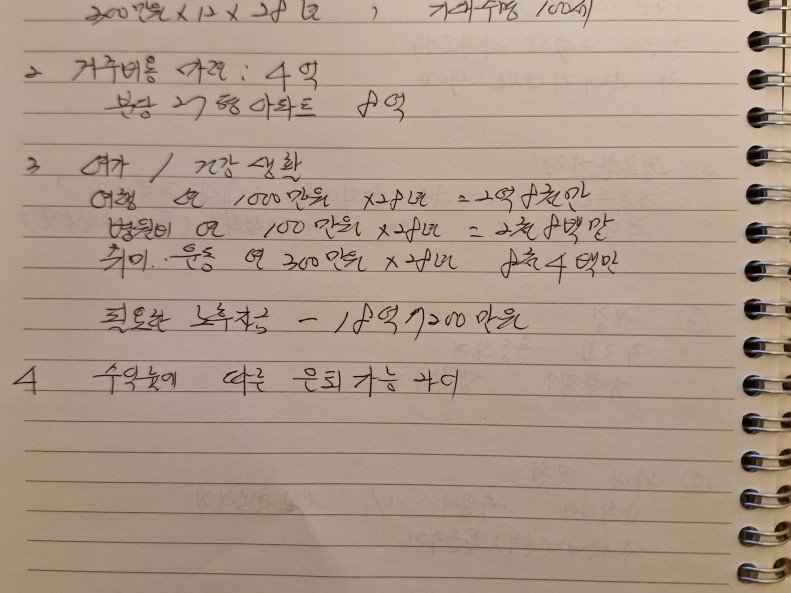 200만원 × 12 × 28년 , 기대수명 100세
2 거주비용 가격 : 4억
분당 27평 아파트 8억
3 여가 / 건강 생활
여행 연 1000만원 ×28년 = 2억 8천만
병원비 연 100만원 ×28년 = 2천 8백만
취미.. 운동 연 300만원 ×28년 8천 4백만
필요한 노후자금 - 18억 7200만원
4 수익율에 따른 은퇴가능 나이